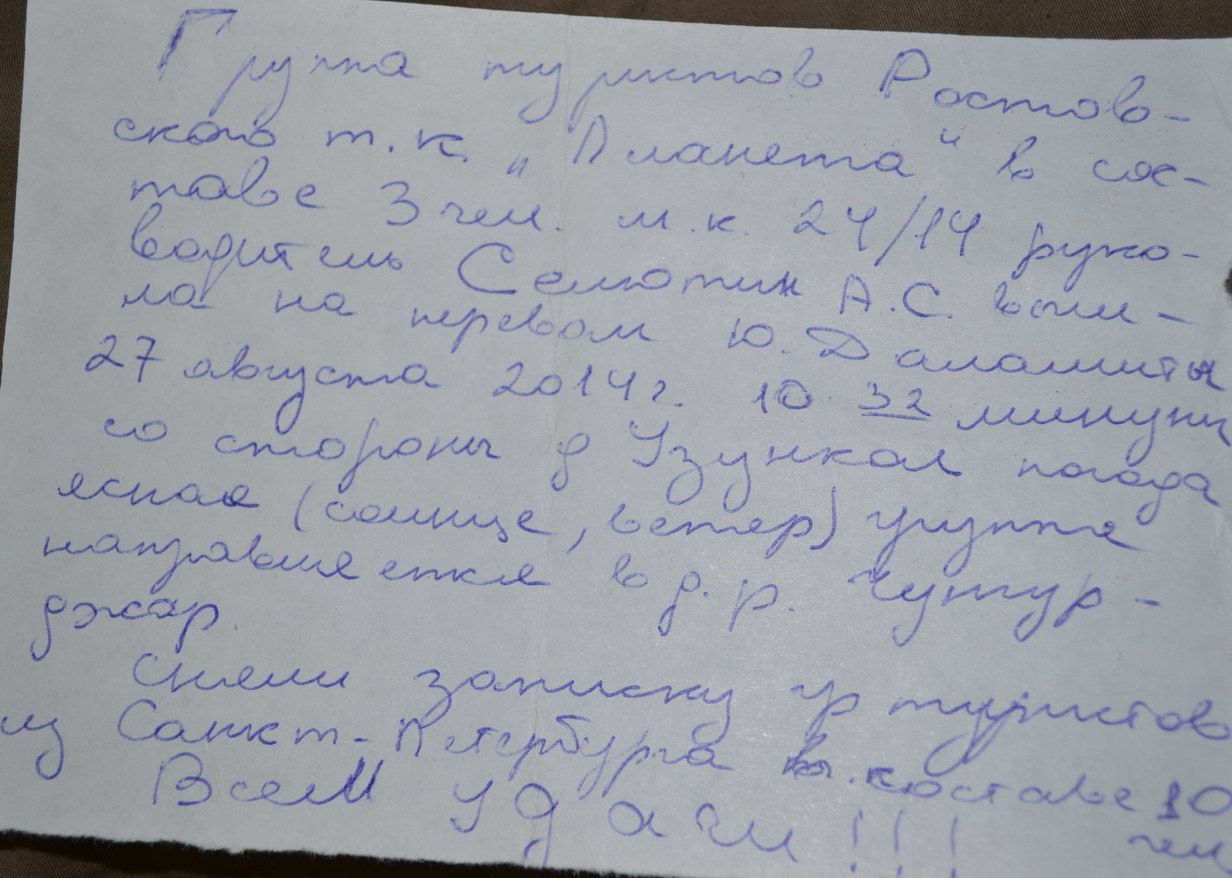 Группа туристов Ростов-
ского т.к. "Планета" в сос-
таве 3 чел. м.к. 24/14 руко-
водитель Селютин А.С. взош-
ла на перевал Ю. Даломиты
27 августа 2014г. 10 32 минуты
со стороны д Узункол погода
ясная (солнце, ветер) группа
направляется в д.р. Чунгур-
джар.
Сняли записку гр туристов
из Санкт-Петербурга в составе 10
чел
Всем удачи!!!